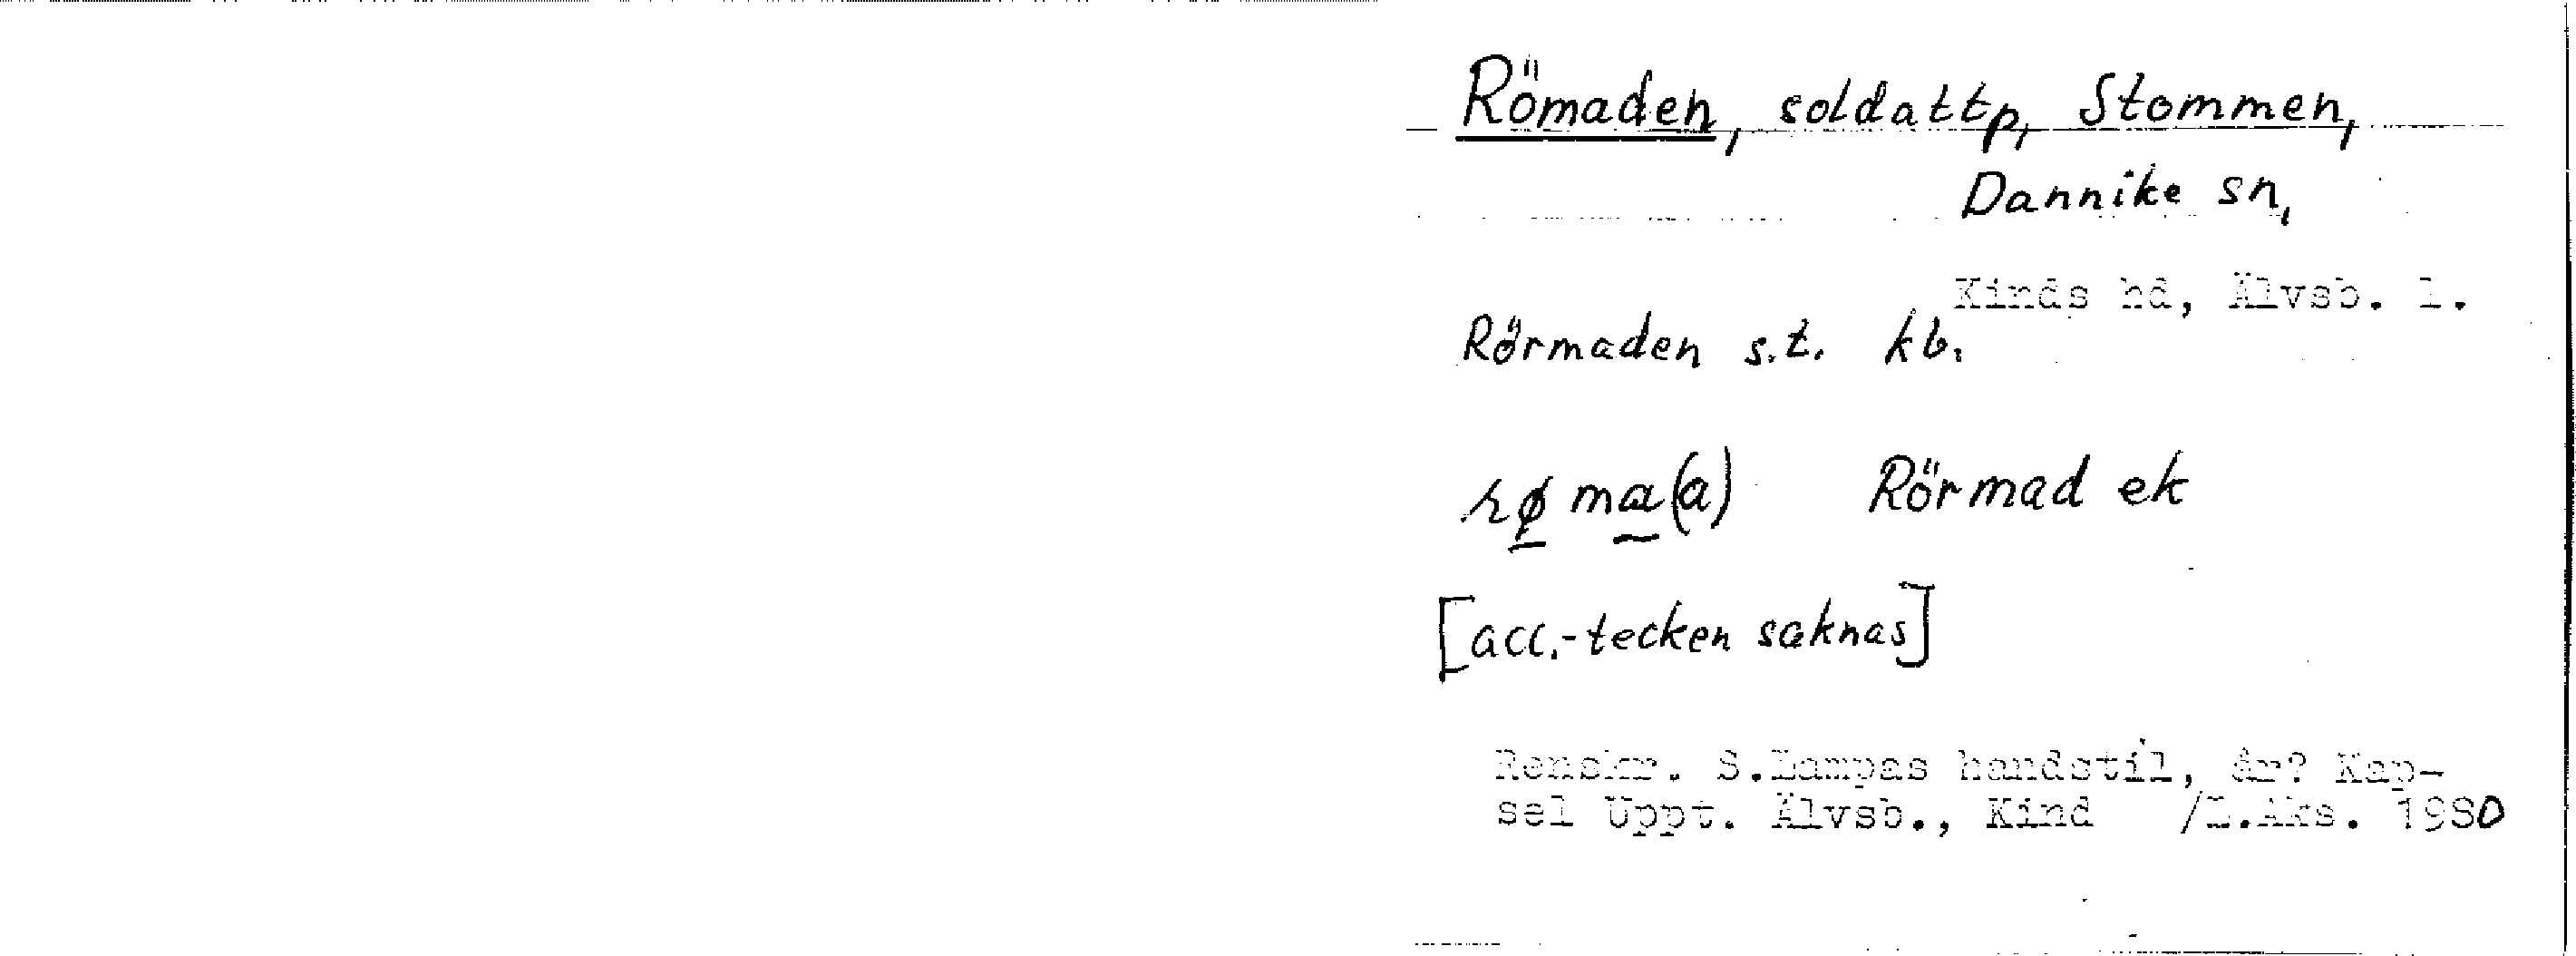 Römaden, soldattp, Stommen,
Dannike sn,
Kinds hd, Älvsb. l.
Rörmaden s.t. kb.
rø̱ ma̱(a) Rörmad ek
[acc.-tecken saknas]
Renskr. S.Lampas handstil, år? Kap-
sel Uppt. Älvsb., Kind /L.Aks. 1980